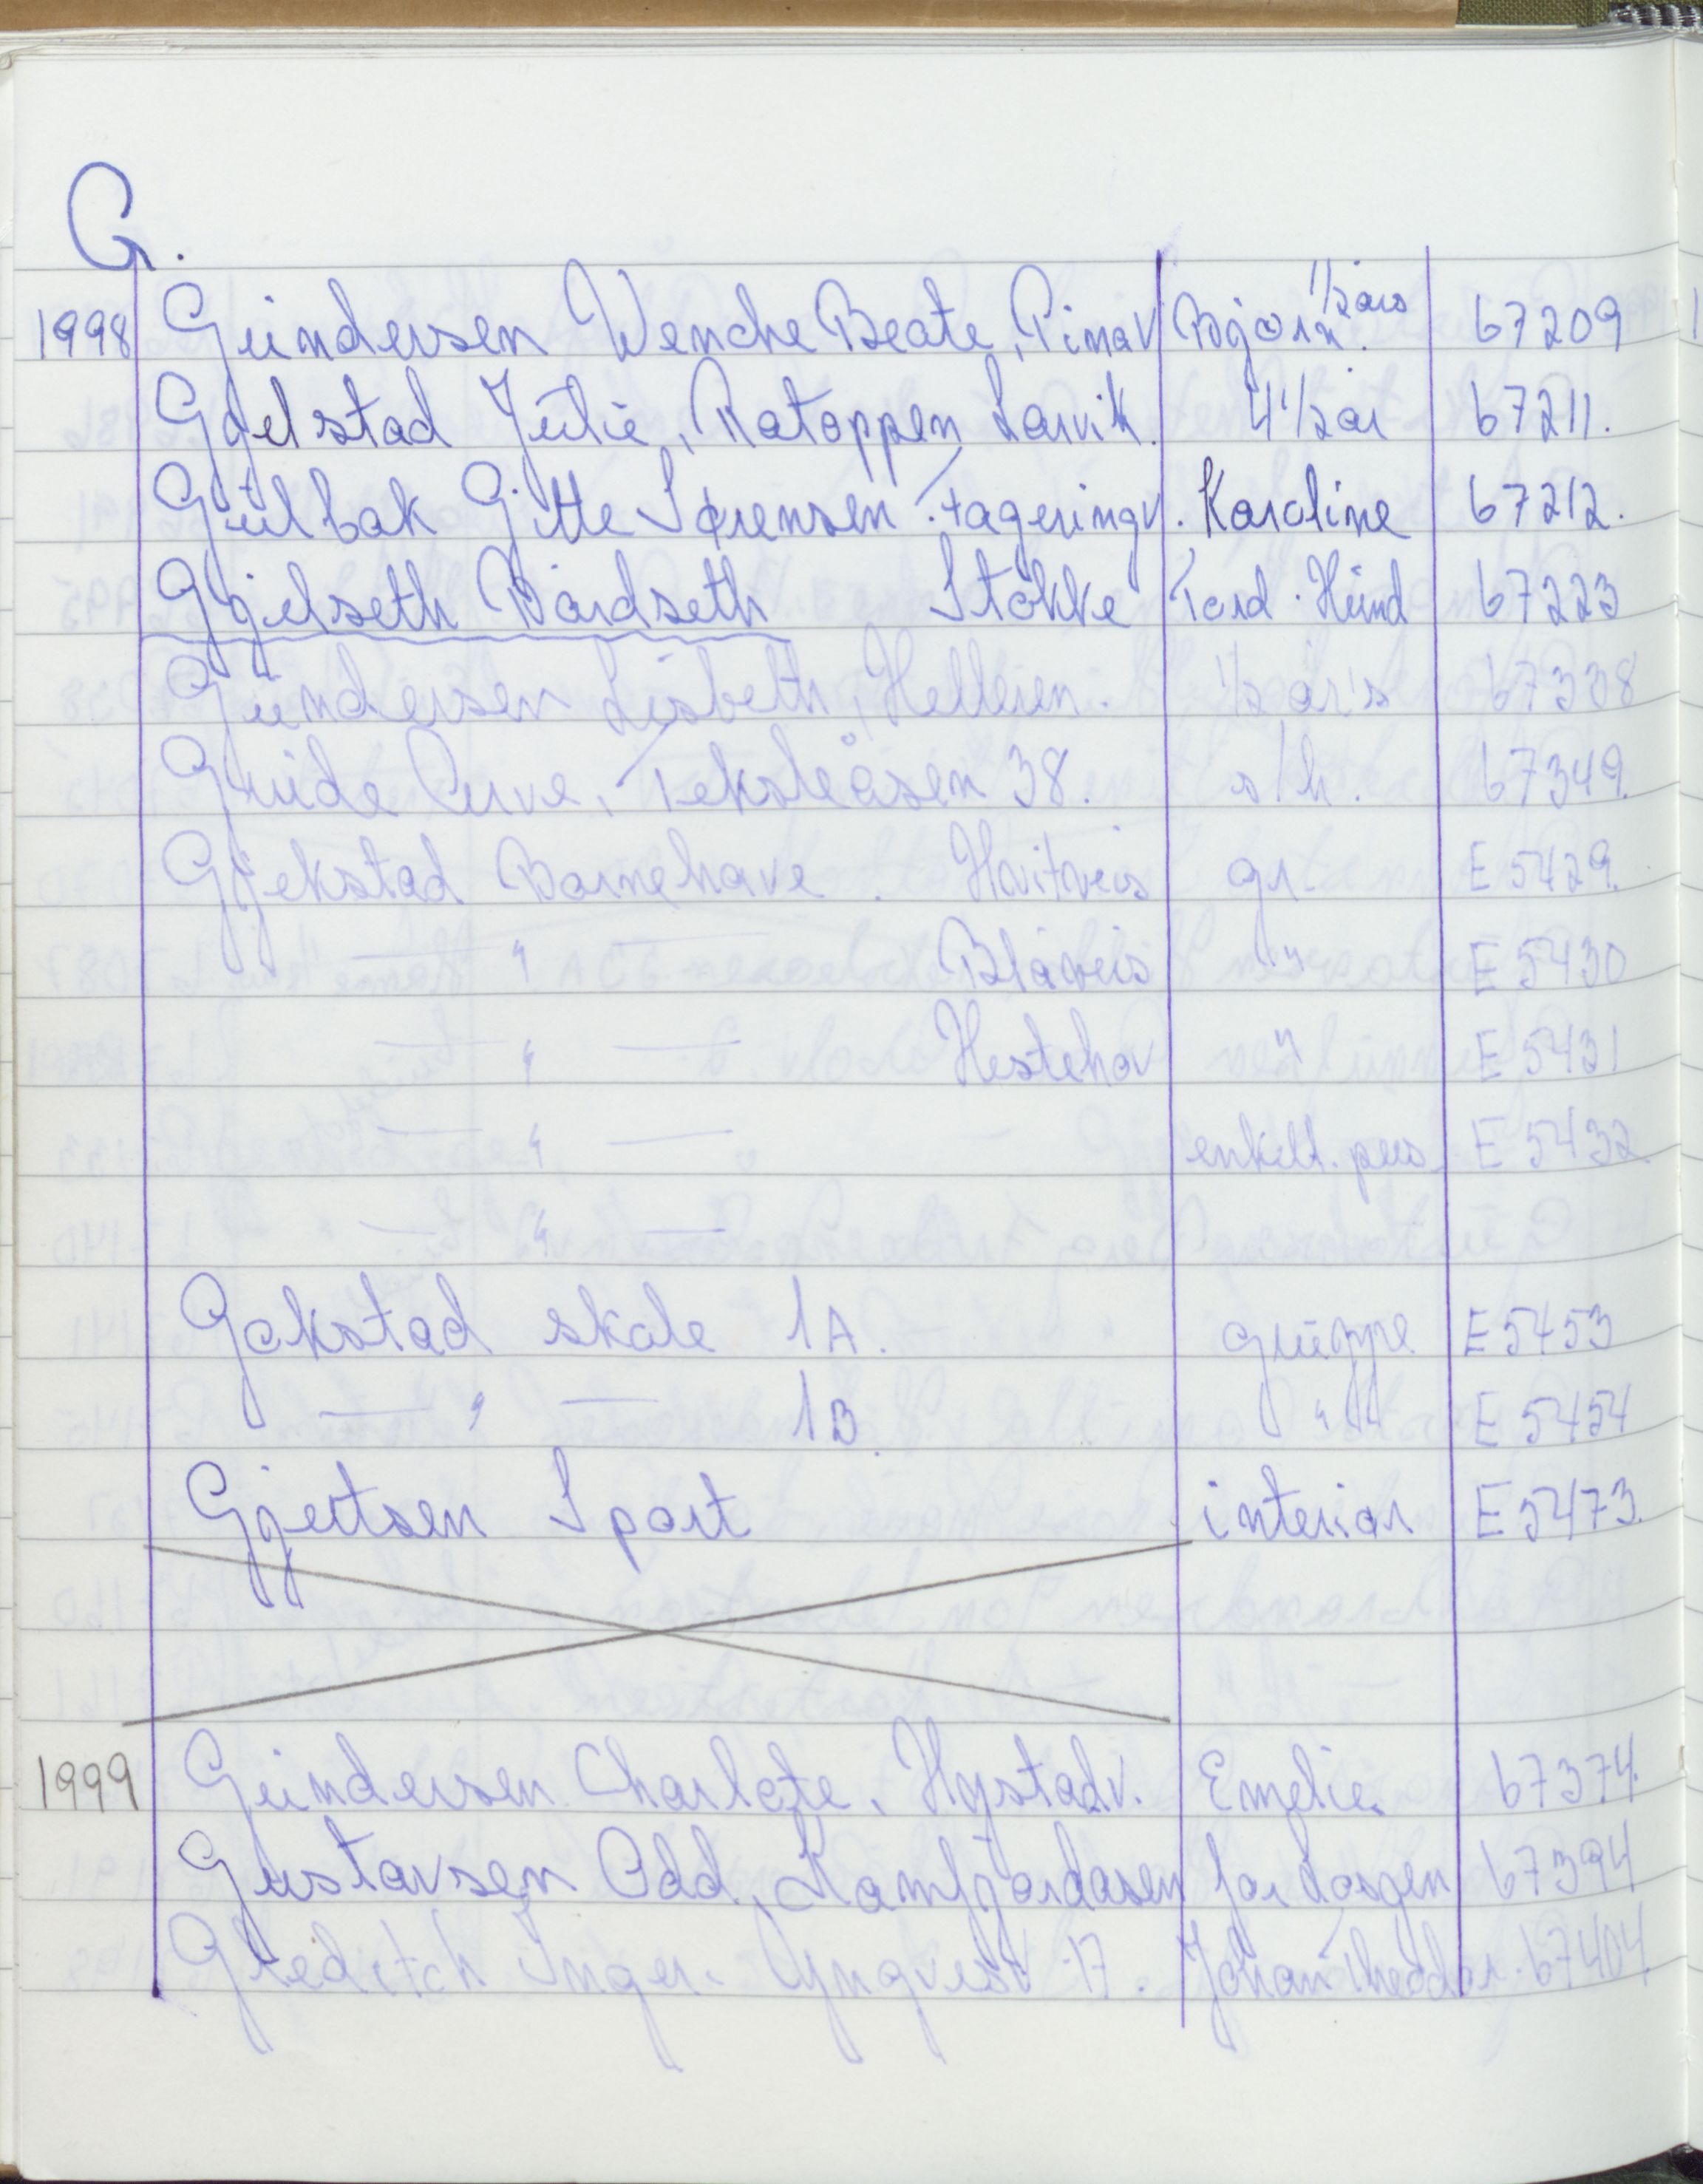 G.
1998 Gundersen Wenche Beate, Rinav Bjørn. 1/2 års 67209
Gjelstad Julie, Ratoppen Larvik. 4 1/2 år 67211.
Gulbak Gitte Sørensen. Fageringv. Karoline 67212.
Gjelseth Bårdseth Stokke Tord. Hund 67223
Gundersen Lisbeth, Helleren. 1/2 år's 67338
Gruide Arve, Teksleåsen 38. s/h. 67349.
Gjekstad Barnehave. Hvitveis gr. E 5429.
— " — Blåveis " E 5430
— " — Hestehov " E 5431
— " — enkelt. pers. E 5432
— " —
Gokstad skole 1A. gruppe E 5453
— " — 1B. " E 5454
Gjertsen Sport interiør E 5473.
1999 Gundersen Charlote, Hystadv. Emelie. 67374.
Gustavsen Odd, Kamfjordåsen 67394
Gleditch Inger. Yngvesv 17. Johan Theodor. 67404